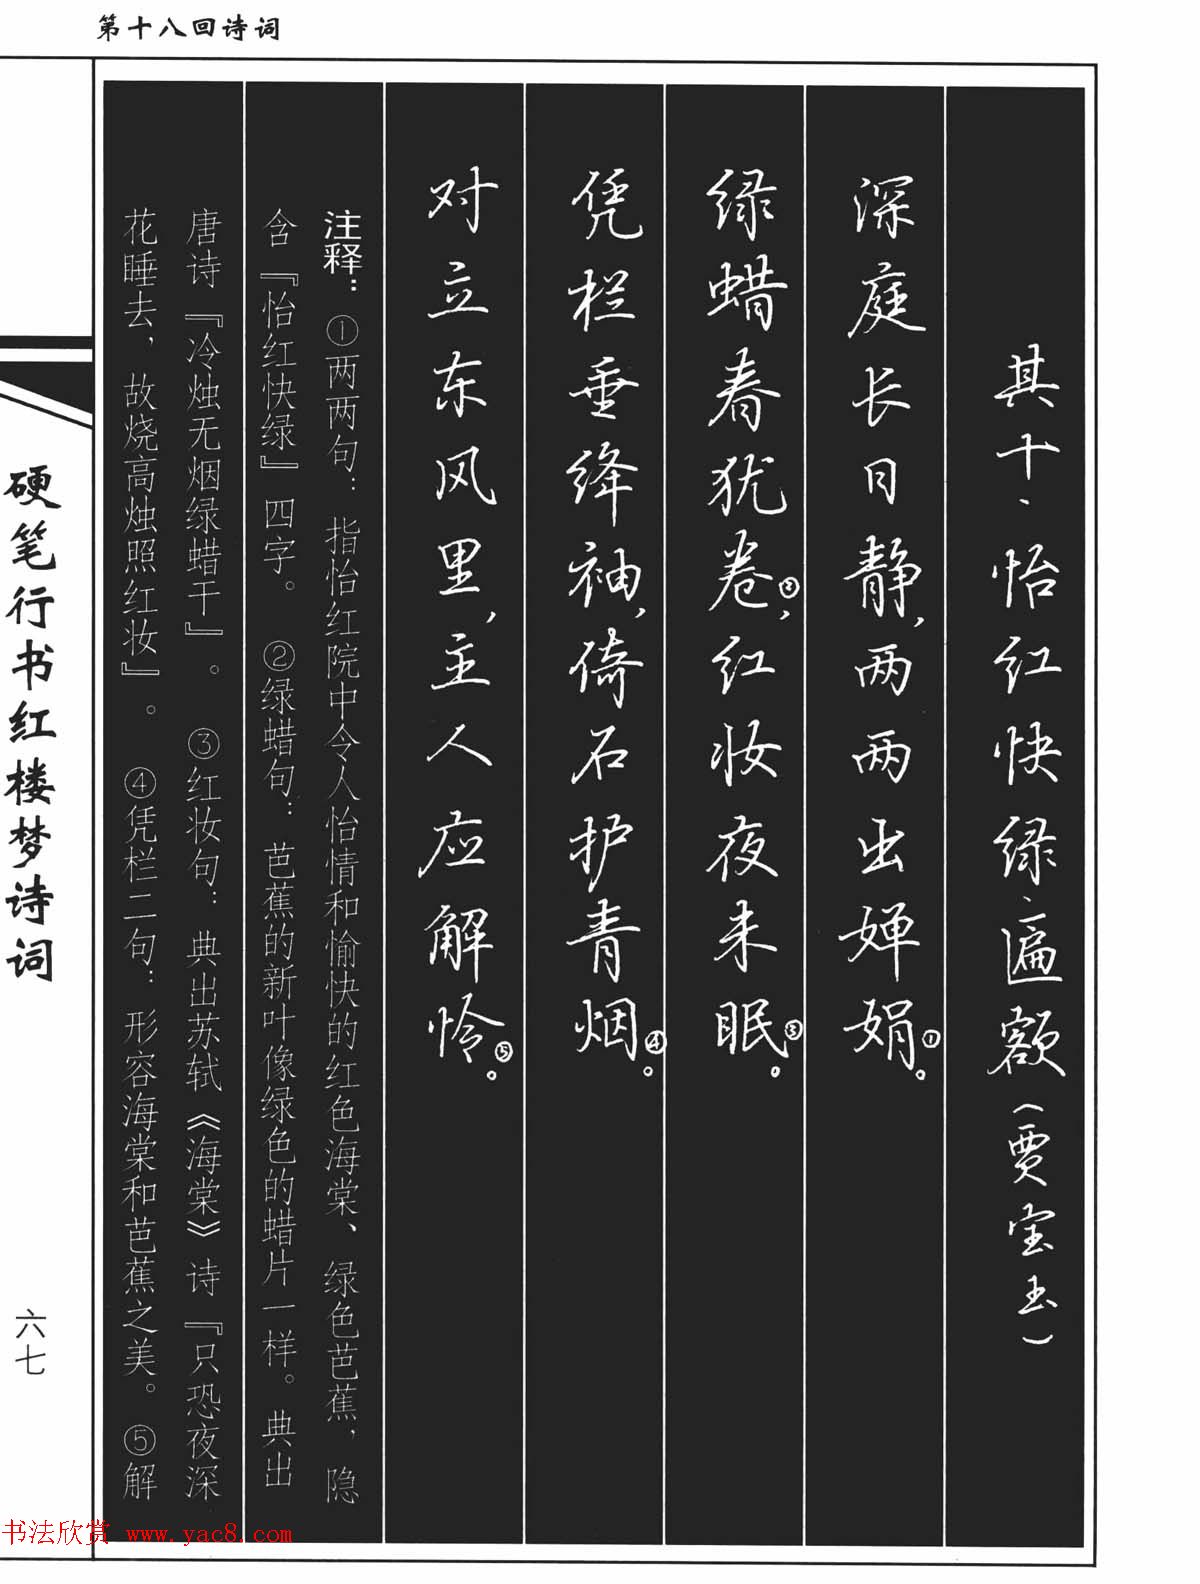 第十八回诗词
其十、怡红快绿、遍额(贾宝玉)
深庭长日静,两两出婵娟①。
绿蜡春犹卷②,红妆夜未眠③。
凭栏垂绛袖,倚石护青烟④。
对立东风里,主人应解怜⑤。
注释:①两两句:指怡红院中令人怡情和愉快的红色海棠、绿色芭蕉,隐
含『怡红快绿』四字。②绿蜡句:芭蕉的新叶像绿色的蜡片一样。典出
唐诗『冷烛无烟绿蜡干』。③红妆句:典出苏轼《海棠》诗『只恐夜深
花睡去,故烧高烛照红妆』。④凭栏二句:形容海棠和芭蕉之美。⑤解
硬笔行书红楼梦诗词
六七
书法欣赏 www.yac8.com